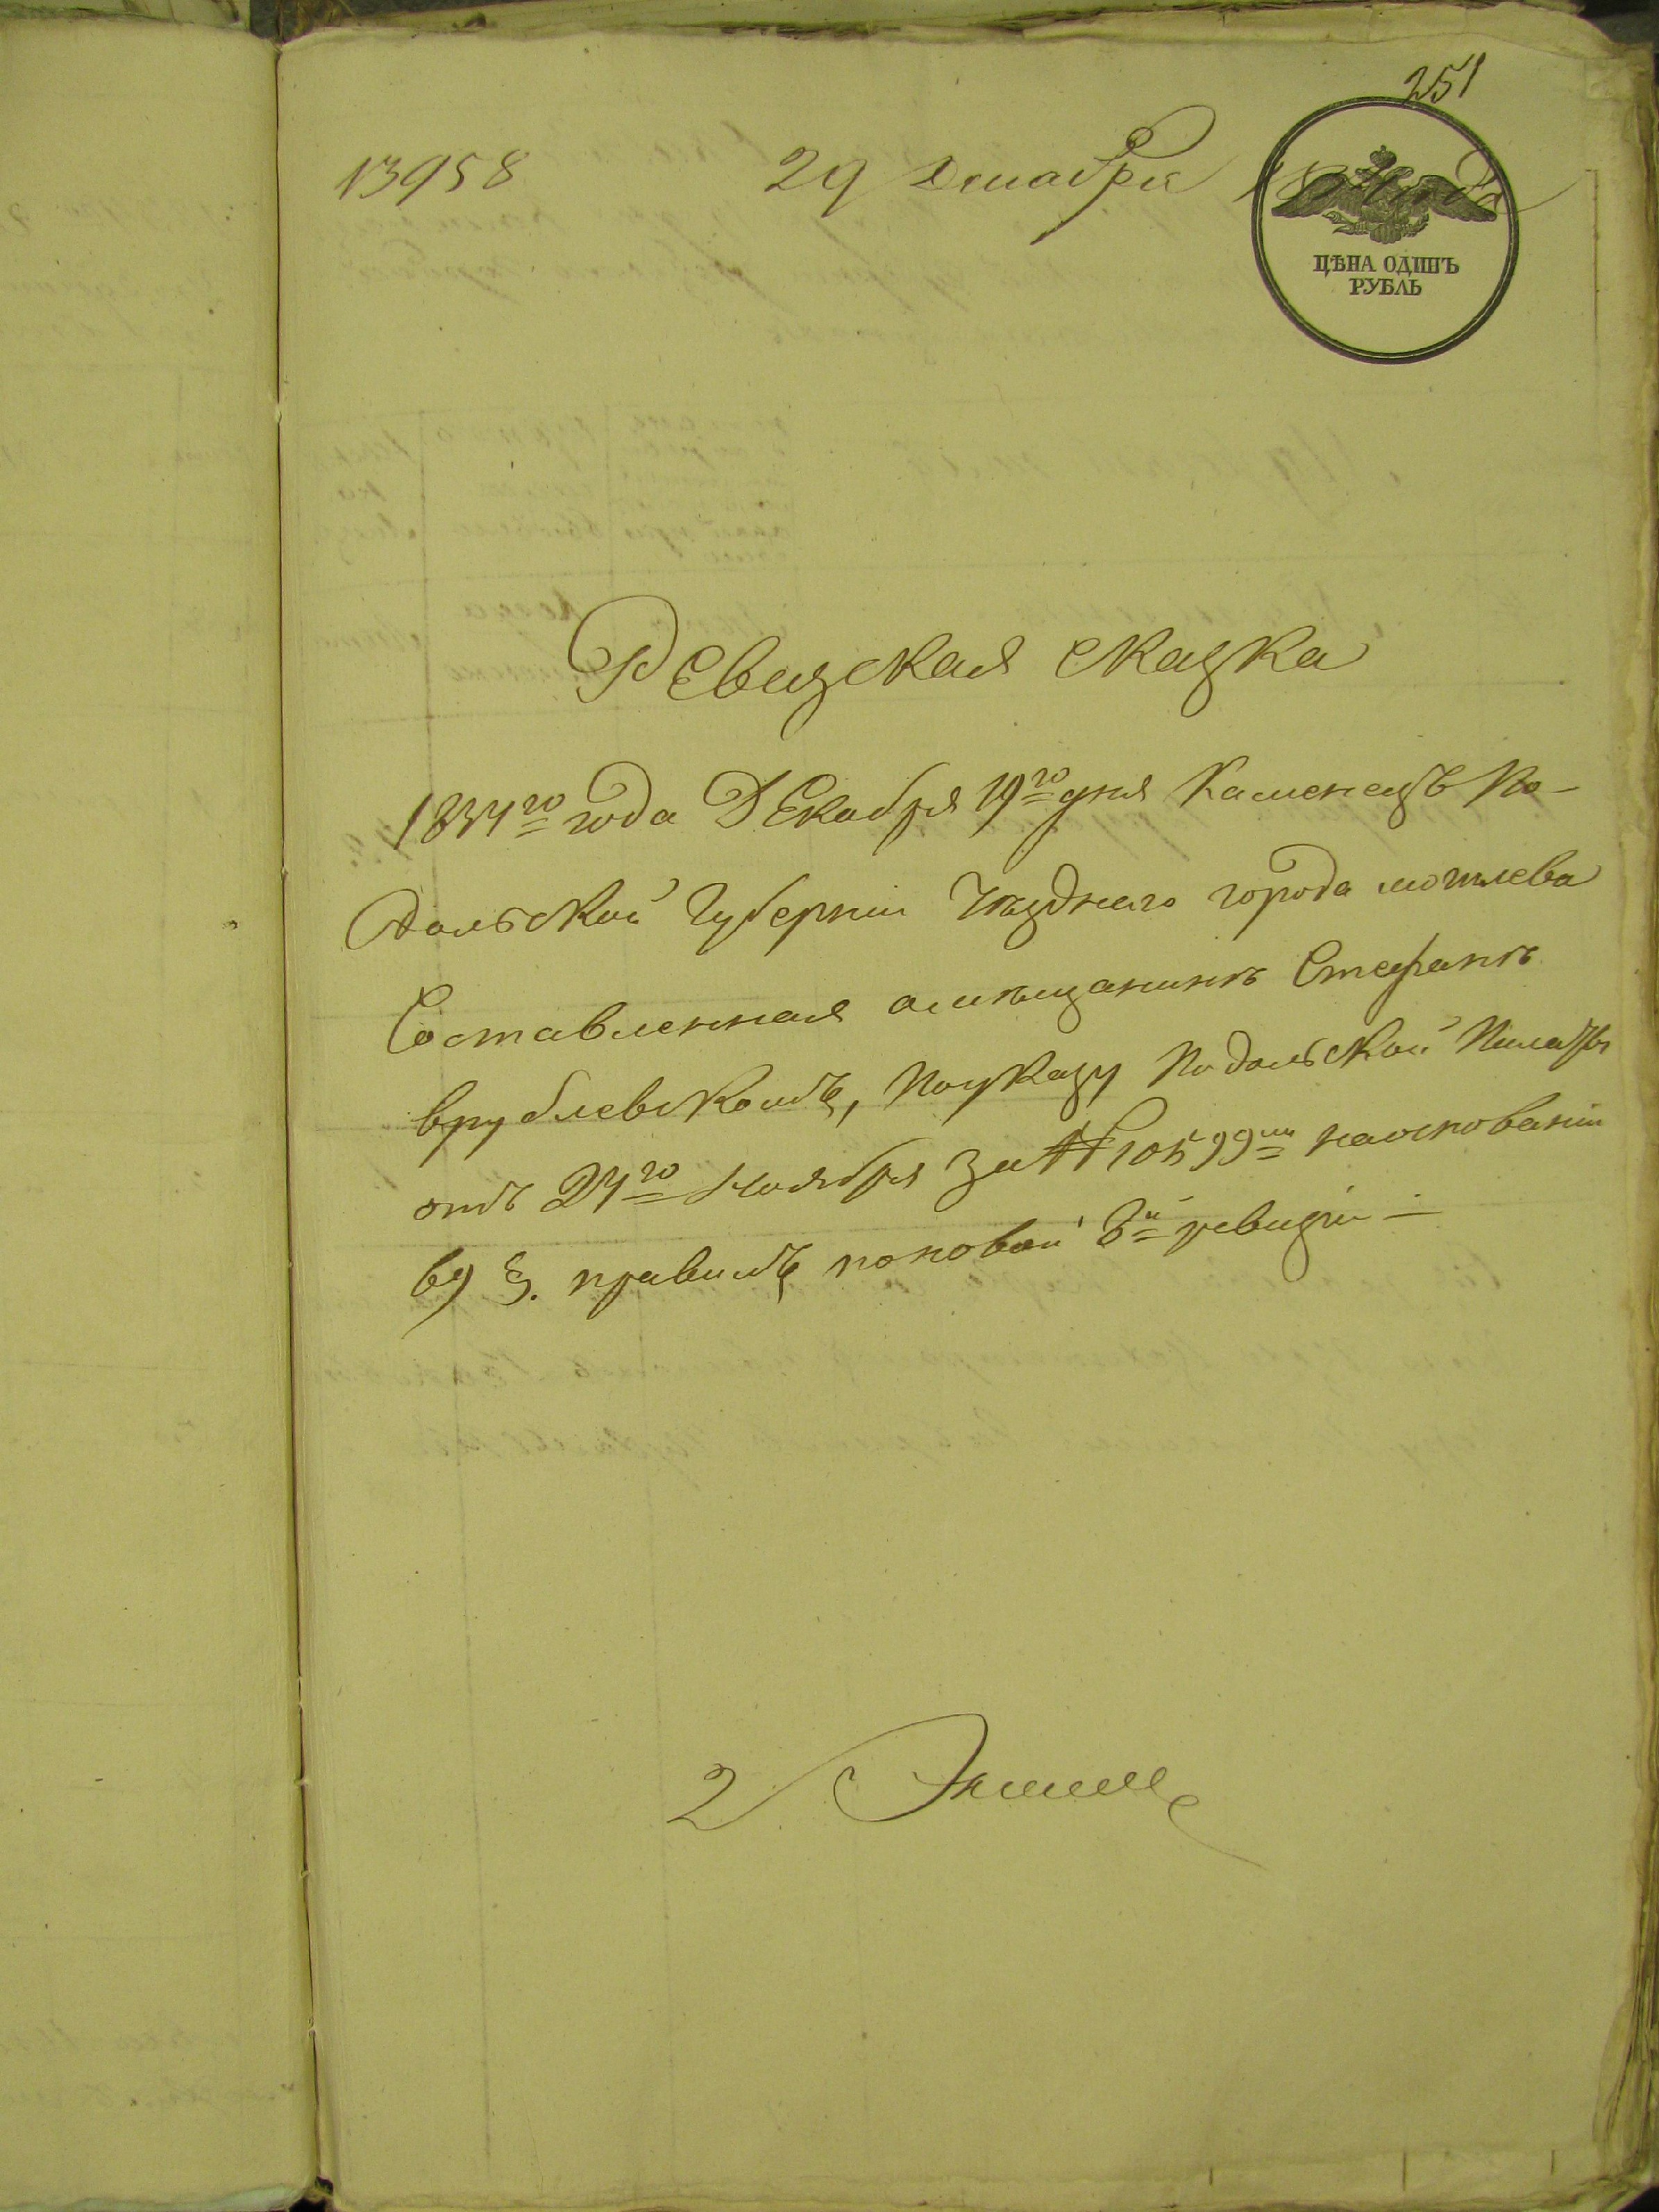 251
13958 29 Декабря 1834 года
ЦѢНА ОДИНЪ
РУБЛЬ
Ревизская сказка
1834го года Декабря 19го дня Каменецъ По-
дольской Губерніи Уѣзднаго города могилева
Составленная омѣщанинѣ Стефанѣ
врублевскомъ, поуказу Подольской Палаты
отъ 24го Ноября за № 10599мъ наосновании
69 §. правилъ поновой 8й ревизіи —
2